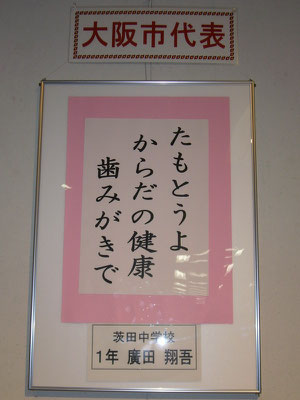 大阪市代表
たもとうよ
からだの健康
歯みがきで
茨田中学校
1年 廣田 翔吾